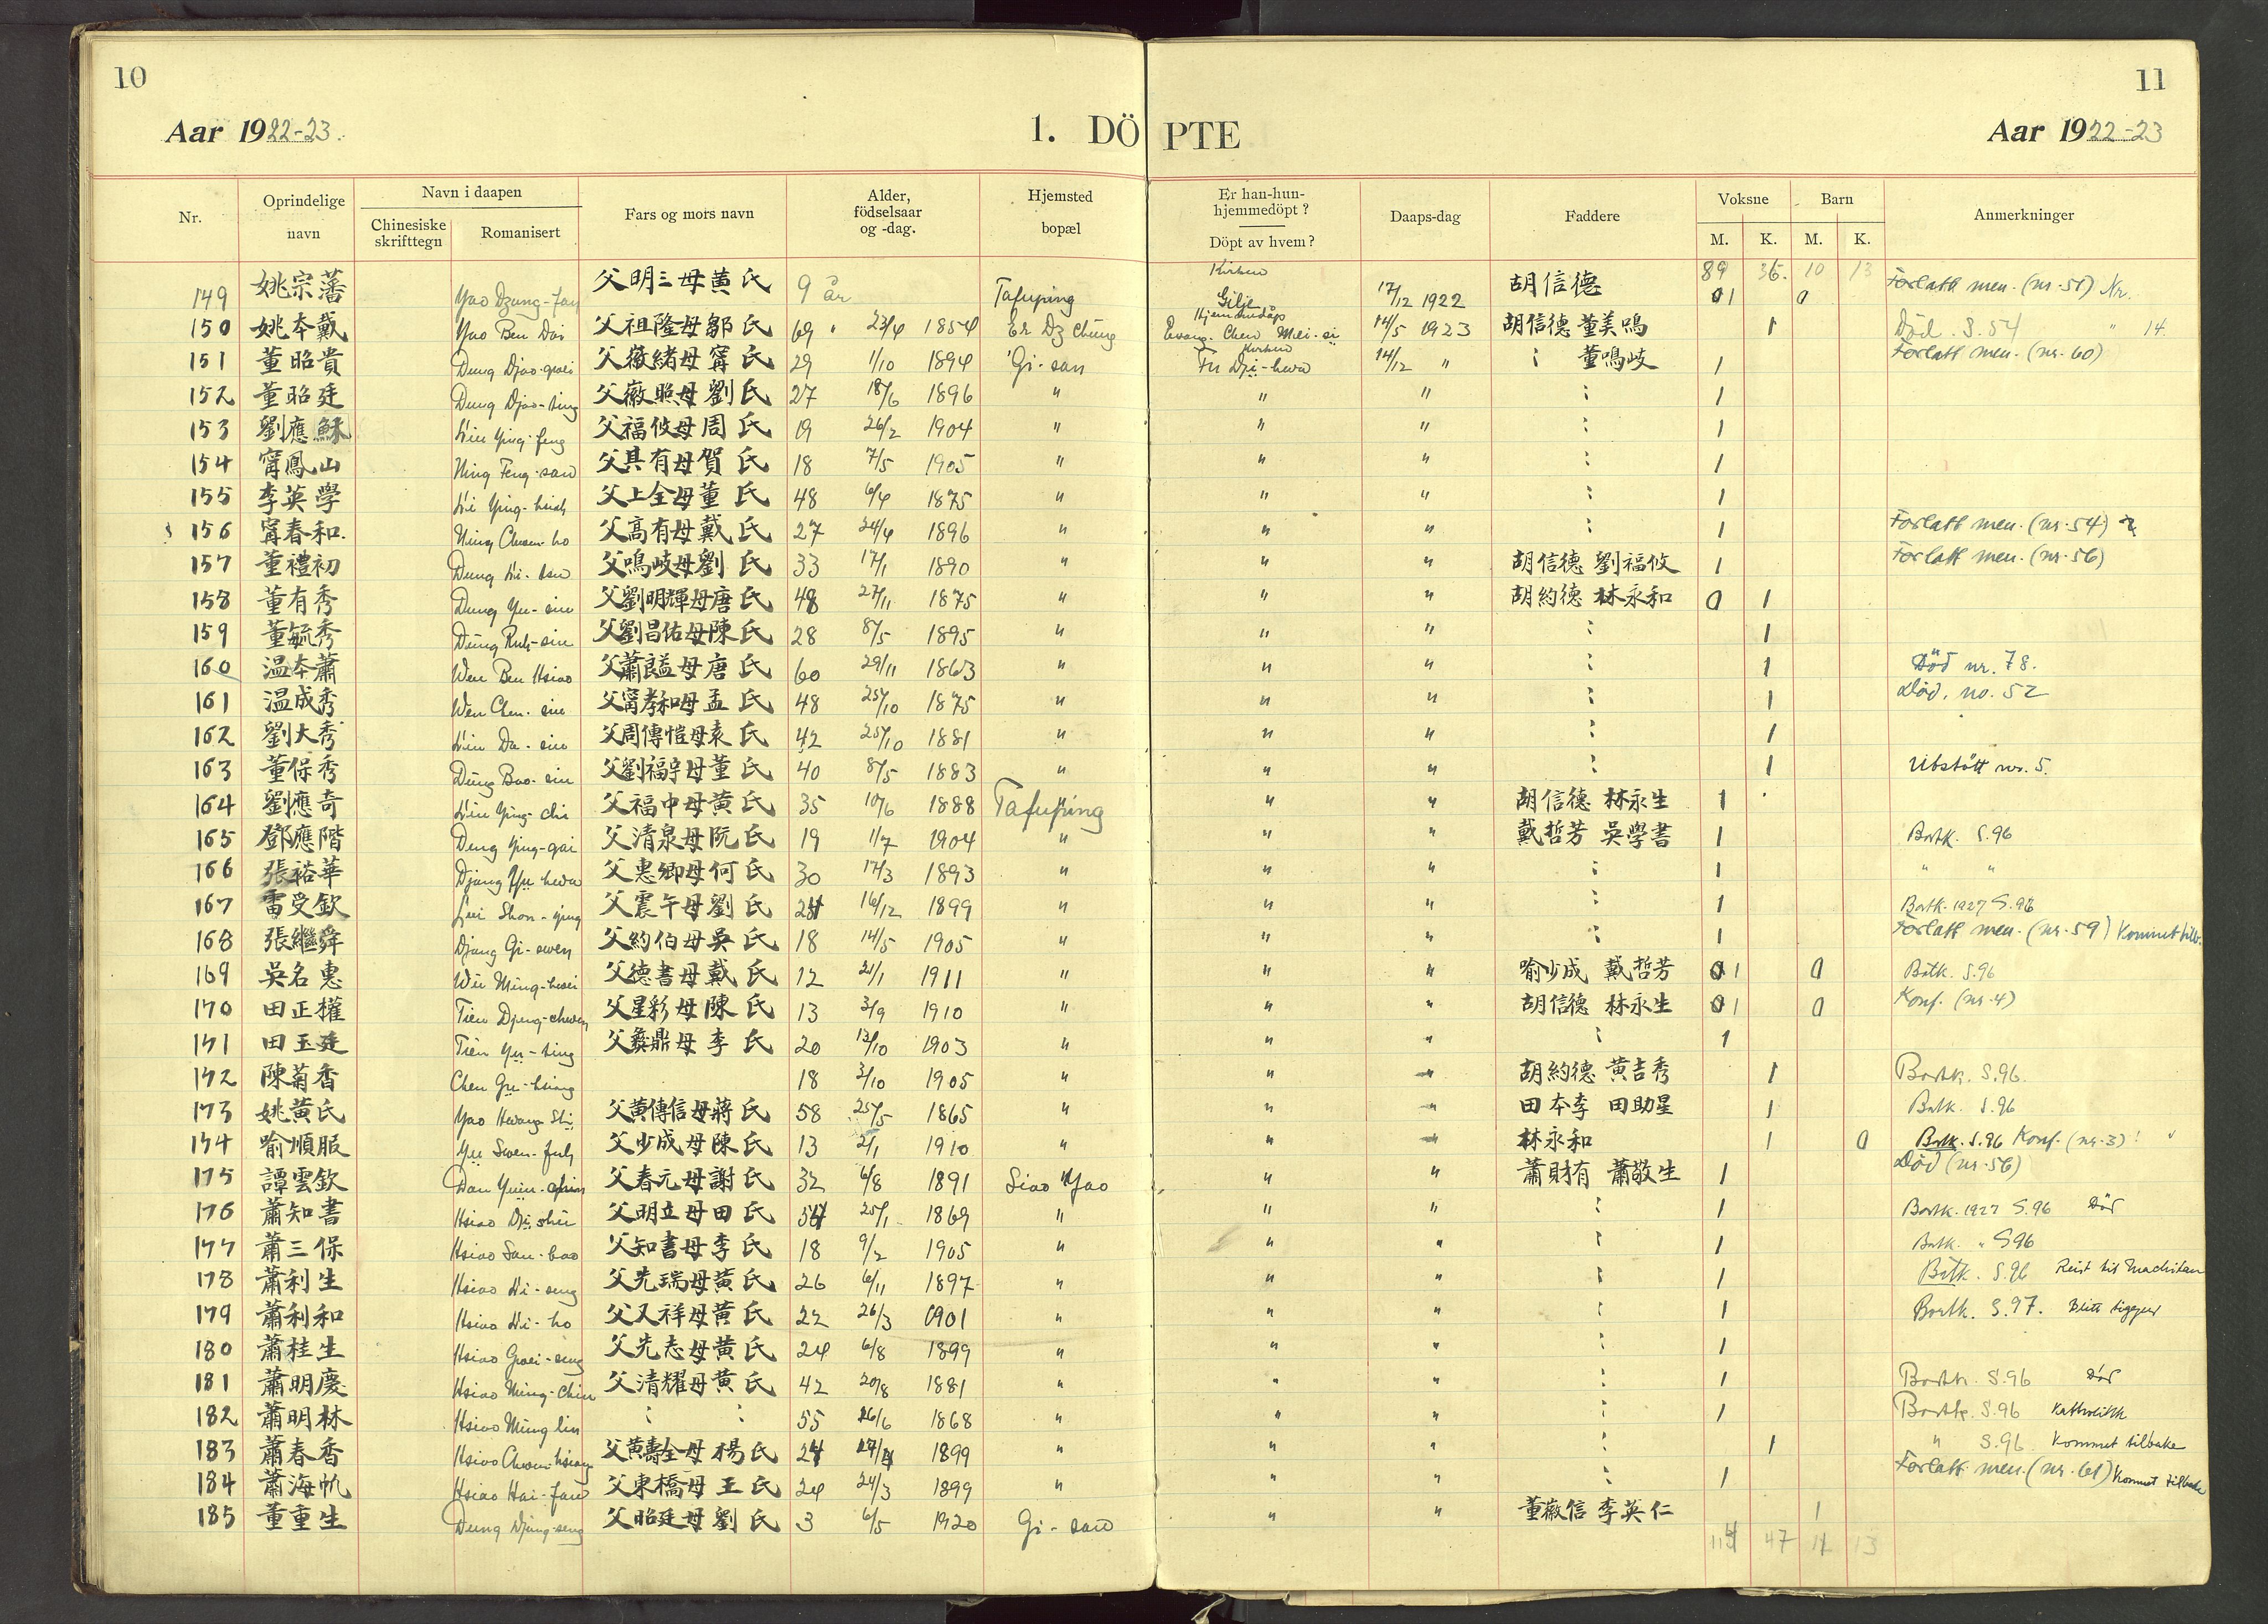 10
11
Aar 1922-23.
1. DÖPTE
Aar 1922-23
Nr.
Oprindelige navn
Navn i daapen
Chinesiske skrifttegn
Romanisert
Fars og mors navn
Alder, födselsaar og -dag.
Hjemsted
bopæl
Er han-hun-hjemmedöpt?
Döpt av hvem?
Daaps-dag
Faddere
Voksne
Barn
M. K. M. K.
Anmerkninger
89 36. 10 13
149 姚宗藩 Yao Dzung-fan 父明三母黃氏 9 år Tafuping Kirken Gilje 17/12 1922 胡信德 0 1 0 Forlatt men. (nr. 51) Nr.
150 姚本戴 Yao Ben Dai 父祖隆母鄒氏 69 " 23/4 1854 Er Dz Chung Hjemmedöp Evang. Chen Mei-si 14/5 1923 胡信德 董美鳴 1 Död. S. 54 " 14.
151 董昭貴 Dung Djao-guei 父薇緒母甯氏 29 1/10 1894 Gi-san Kirken Fu Dji-hwa 14/12 " : 董鳴岐 1 Forlatt men. (nr. 60)
152 董昭廷 Dung Djao-ting 父薇照母劉氏 27 18/6 1896 " " " : 1
153 劉應穌 Liu Ying-feng 父福攸母周氏 19 26/2 1904 " " " : 1
154 甯鳳山 Ning Feng-san 父具有母賀氏 18 7/5 1905 " " " : 1
155 李英學 Li Ying-hsioh 父上全母董氏 48 6/4 1875 " " " : 1
156 甯春和. Ning Chuen-ho 父高有母戴氏 27 24/4 1896 " " " : 1 Forlatt men. (nr. 54)
157 董禮初 Dung Li-tsu 父鳴岐母劉氏 33 17/1 1890 " " " 胡信德 劉福攸 1 Forlatt men. (nr. 56)
158 董有秀 Dung Yu-siu 父劉明輝母唐氏 48 27/11 1875 " " " 胡約德 林永和 0 1
159 董毓秀 Dung Ruh-siu 父劉昌佑母陳氏 28 8/5 1895 " " " : 1
160 温本蕭 Wen Ben Hsiao 父蕭良益母唐氏 60 29/11 1863 " " " : 1 Död nr. 78.
161 温成秀 Wen Chen-siu 父甯孝和母孟氏 48 25/10 1875 " " " : 1 Död. no. 52
162 劉大秀 Liu Da-siu 父周傳愷母袁氏 42 25/10 1881 " " " : 1
163 董保秀 Dung Bao-siu 父劉福宇母董氏 40 8/5 1883 " " " : 1 Utstött nr. 5.
164 劉應奇 Liu Ying-chi 父福中母黃氏 35 10/6 1888 Tafuping " " 胡信德 林永生 1
165 鄧應階 Deng Ying-gai 父清泉母阮氏 19 1/7 1904 " " " 戴哲芳 吳學書 1 Bortk. S. 96
166 張裕華 Djang Yu-hwa 父惠卿母何氏 30 17/3 1893 " " " : 1 " "
167 雷受欽 Lui Shou- 父震午母劉氏 24 16/12 1899 " " " : 1 Bortk. 1927 S. 96
168 張繼舜 Djang Gi-swen 父約伯母吳氏 18 14/5 1905 " " " : 1 Forlatt men. (nr. 59) Kommet tilb.
169 吳名惠 Wu Ming-huei 父德書母戴氏 12 21/1 1911 " " " 喻少成 戴哲芳 0 1 0 Botk. S. 96
170 田正權 Tien Djeng-chuen 父星彩母陳氏 13 3/9 1910 " " " 胡信德 林永生 0 1 0 Konf. (nr. 4)
171 田玉廷 Tien Yu-ting 父彝鼎母李氏 20 13/10 1903 " " " : 1
172 陳菊香 Chen Gu-hsiang 18 3/10 1905 " " " 胡約德 黃吉秀 1 Bortk. S. 96.
173 姚黃氏 Yao Hwang Shi 父黃傳信母蔣氏 58 25/5 1865 " " " 田本李 田助星 1 Botk. S. 96
174 喻順服 Yu Swen-fuh 父少成母陳氏 13 2/1 1910 " " " 林永和 1 0 Botk. S. 96 Konf. (nr. 3)!
175 譚雲欽 Dan Yuin-chin 父春元母謝氏 32 6/8 1891 Siao Yao " " 蕭財有 蕭敬生 1 Död (nr. 56)
176 蕭知書 Hsiao Dji shu 父明立母田氏 54 25/1 1869 " " " : 1 Bortk. 1927 S. 96 Död
177 蕭三保 Hsiao San-bao 父知書母李氏 18 9/2 1905 " " " : 1 Botk. " S 96
178 蕭利生 Hsiao Li-seng 父先瑞母黃氏 26 6/11 1897 " " " : 1 Botk. S. 96 Reist til
179 蕭利和 Hsiao Li-ho 父又祥母黃氏 22 26/3 1901 " " " : 1 Bortk. S. 97. Blitt tigger
180 蕭桂生 Hsiao Guei-seng 父先志母黃氏 24 6/8 1899 " " " : 1
181 蕭明慶 Hsiao Ming-Chin 父清耀母黃氏 42 20/8 1881 " " " : 1 Bortk. S. 96 Död
182 蕭明林 Hsiao Ming lin : : 55 26/6 1868 " " " : 1 Bortk. S. 96 Katholikk
183 蕭春香 Hsiao Chuen-hsiang 父黃壽全母楊氏 24 1899 " " " : 1 " S. 96. Kommet tilbake
184 蕭海帆 Hsiao Hai-fan 父東橋母王氏 24 24/3 1899 " " " : 1 Forlatt men. (nr. 61) Kommet tilbake
185 董重生 Dung Djung-seng 父昭廷母劉氏 3 6/5 1920 Gi-san " " 董薇信 李英仁 1
114 47 11 13